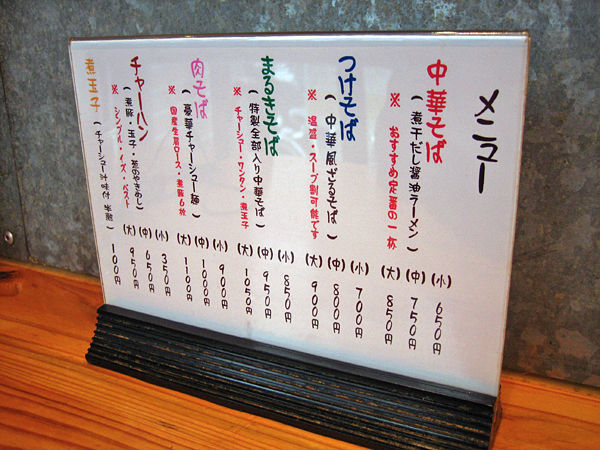 メニュー
中華そば
(煮干だし醤油ラーメン)
※ おすすめ定番の一杯
(小) 650円
(中) 750円
(大) 850円
つけそば
(中華風ざるそば)
※ 温盛・スープ割可能です
(小) 700円
(中) 800円
(大) 900円
まるきそば
(特製全部入り中華そば)
※ チャーシュー・ワンタン・煮玉子
(小) 850円
(中) 950円
(大) 1050円
肉そば
(豪華チャーシュー麺)
※ 国産生肩ロース・煮豚6枚
(小) 900円
(中) 1000円
(大) 1100円
チャーハン
(煮豚・玉子・葱のやきめし)
※ シンプル・イズ・ベスト
(小) 350円
(中) 650円
(大) 950円
煮玉子
(チャーシュー汁味付 半熟)
100円